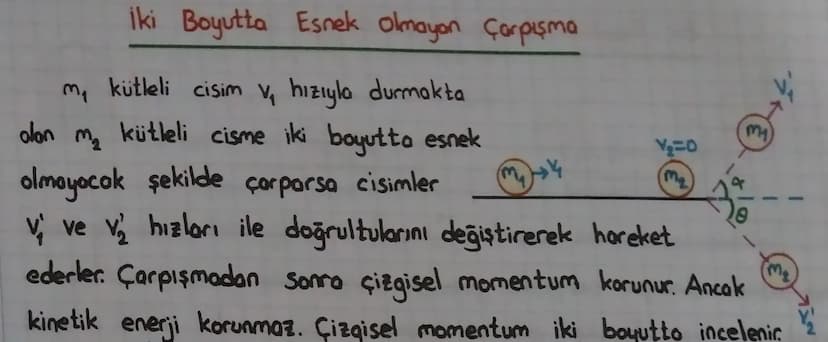 İki Boyutta Esnek Olmayan Çarpışma
m₁ kütleli cisim v₁ hızıyla durmakta
olan m₂ kütleli cisme iki boyutta esnek
olmayacak şekilde çarparsa cisimler
v₁' ve v₂' hızları ile doğrultularını değiştirerek hareket
ederler. Çarpışmadan sonra çizgisel momentum korunur. Ancak
kinetik enerji korunmaz. Çizgisel momentum iki boyutta incelenir.
m₁ v₁
v₂=0
m₂
v₁'
m₁
α
θ
m₂
v₂'